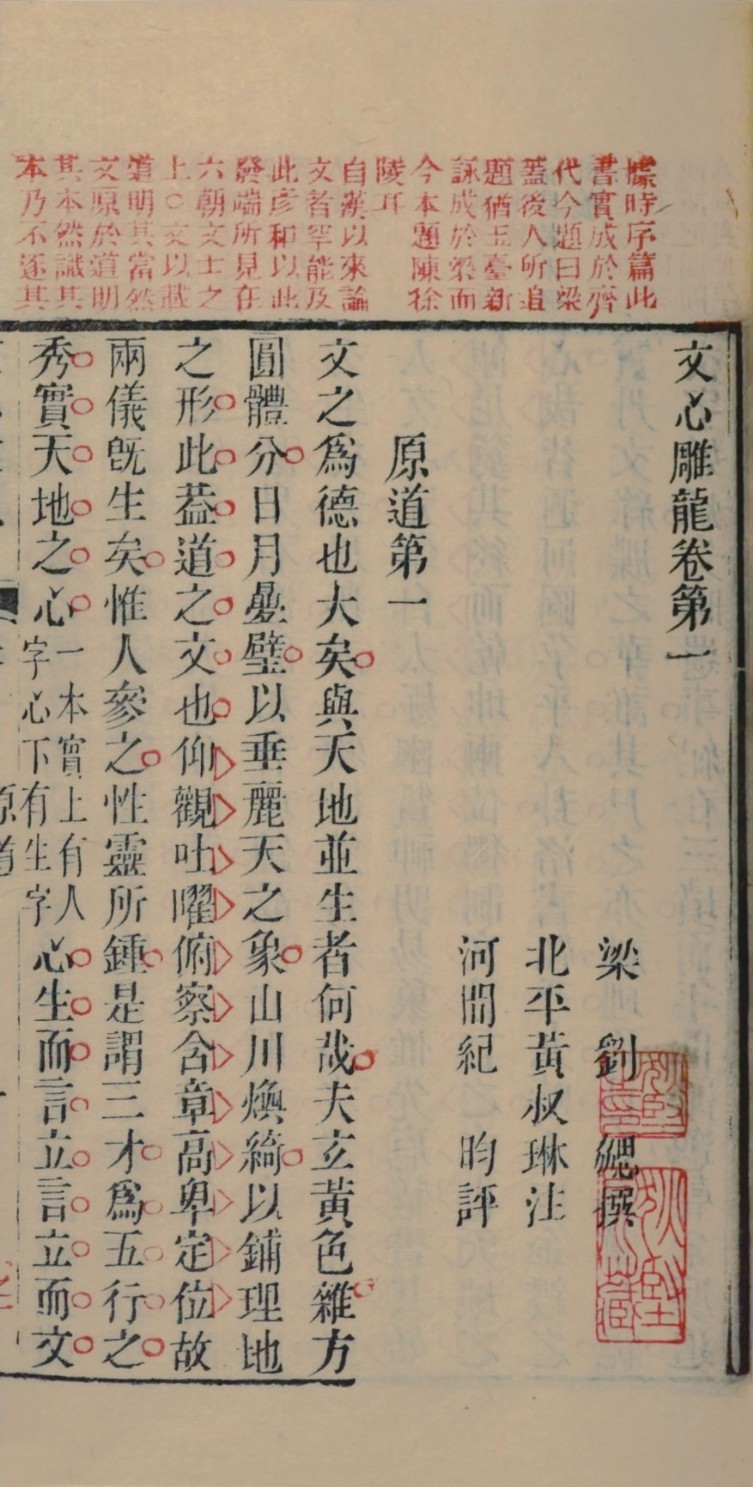 據時序篇此
書實成於齊
代今題曰梁
蓋後人所追
題猶玉臺新
詠成於梁而
今本題陳徐
陵耳
自漢以來論
文者罕能及
此彥和以此
發端所見在
六朝文士之
上○文以載
道明其當然
文原於道明
其本然識其
本乃不逐其
文心雕龍卷第一
梁劉勰撰
北平黃叔琳注
河間紀昀評
原道第一
文之爲德也大矣與天地並生者何哉夫玄黃色雜方
圓體分日月疊璧以垂麗天之象山川煥綺以鋪理地
之形此蓋道之文也仰觀吐曜俯察含章高卑定位故
兩儀旣生矣惟人參之性靈所鍾是謂三才爲五行之
秀實天地之心一本實上有人字心下有生字心生而言立言立而文